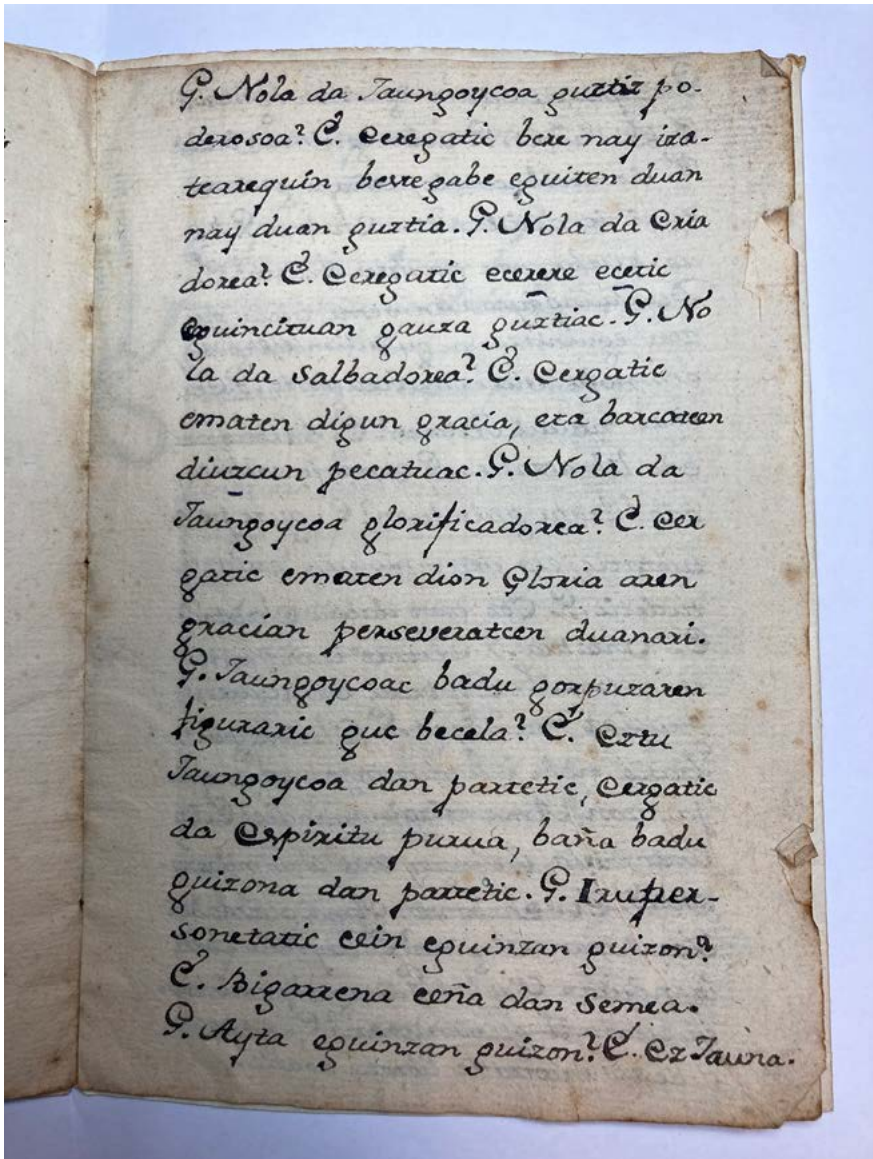 G. Nola da Jaungoycoa guztiz po-
derosoa? E. Ceregatic bere nay iza-
tearequin besregabe eguiten duan
nay duan guztia. G. Nola da Cria
dorea? E. Ceregatic ecerere ecetic
eguincituan gauza guztiac. G. No
la da Salbadorea? E. Cergatic
ematen digun gracia, eta barcatcen
diuzcun pecatuac. G. Nola da
Jaungoycoa glorificadorea? E. Cer
gatic ematen dion Gloria aren
gracian perseveratcen duanari.
G. Jaungoycoac badu gorputzaren
figuraric guc becela? E. Eztu
Jaungoycoa dan partetic, Cergatic
da Espiritu purua, baña badu
guizona dan partetic. G. Iruper-
sonetatic cein eguinzan guizon?
E. Bigarrena ceña dan Semea.
G. Ayta eguinzan guizon? E. Ez Jauna.